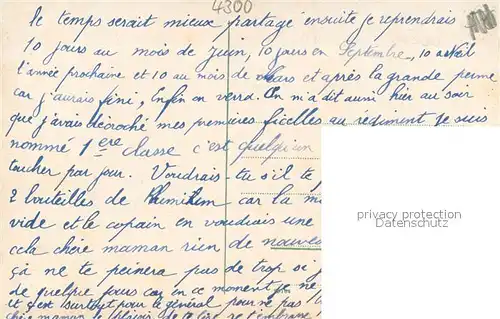 4300
le temps serait mieux partagé ensuite je reprendrais
10 jours au mois de Juin, 10 jours en Septembre, 10 avril
l'année prochaine et 10 au mois de Mars et après la grande perme
car j'aurais fini, Enfin on verra. On m'a dit aussi hier au soir
que j'avais décroché mes premières ficelles au régiment je suis
nommé 1ère classe c'est quelqu'un
toucher par jour. Voudrais-tu s'il te
2 bouteilles de car la
vide et le copain en voudrais une
cela chère maman rien de
çà ne te peinera pas de trop si j
de quelques jours car en ce moment je ne
et c'est surtout pour le général pour ne pas
chère maman le plaisir de te lire je t'embrasse
privacy protection
Datenschutz